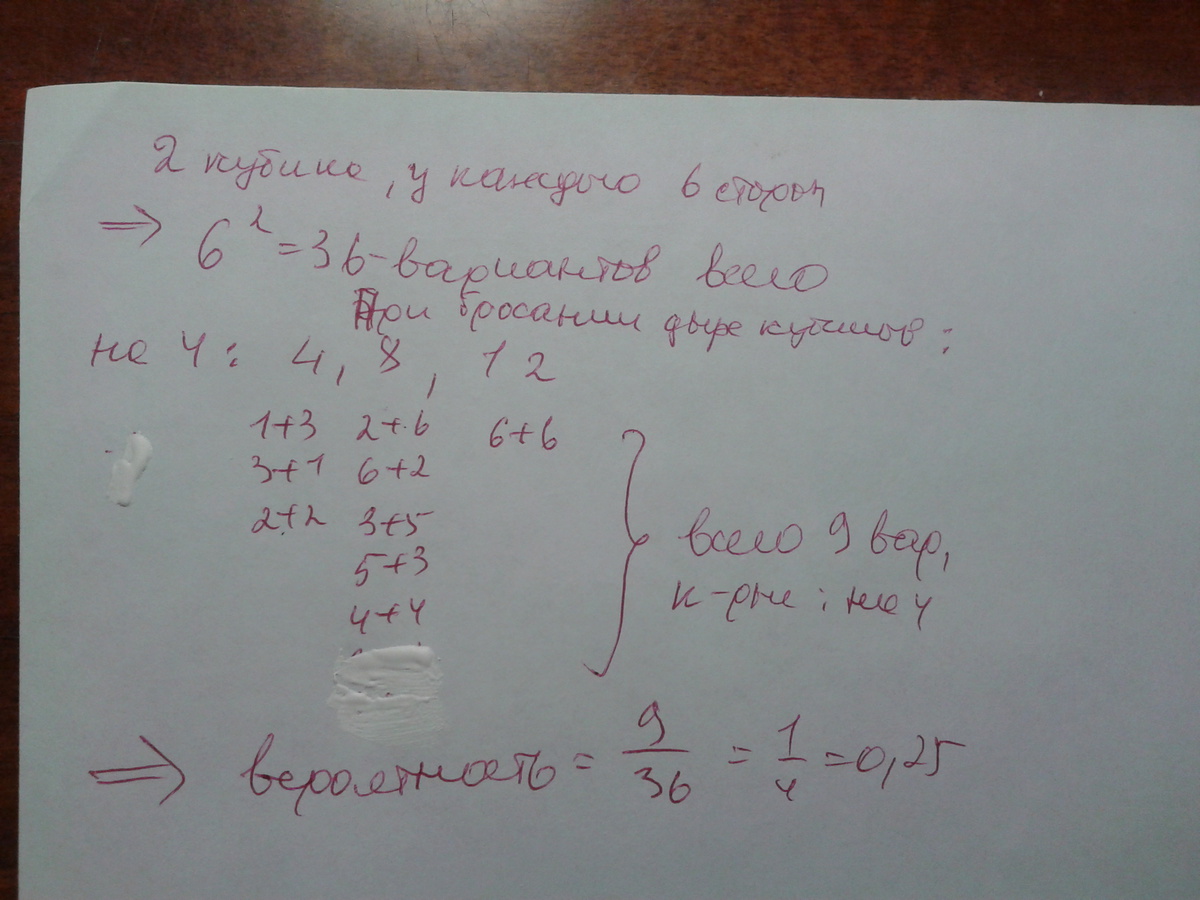 2 кубика, у каждого 6 сторон
⇒ 6² = 36 - вариантов всего
При бросании двух кубиков :
на 4 : 4, 8, 12
1+3 2+6 6+6
3+1 6+2
2+2 3+5
5+3
4+4
всего 9 вар,
к-рые : на 4
⇒ вероятность = 9/36 = 1/4 = 0,25